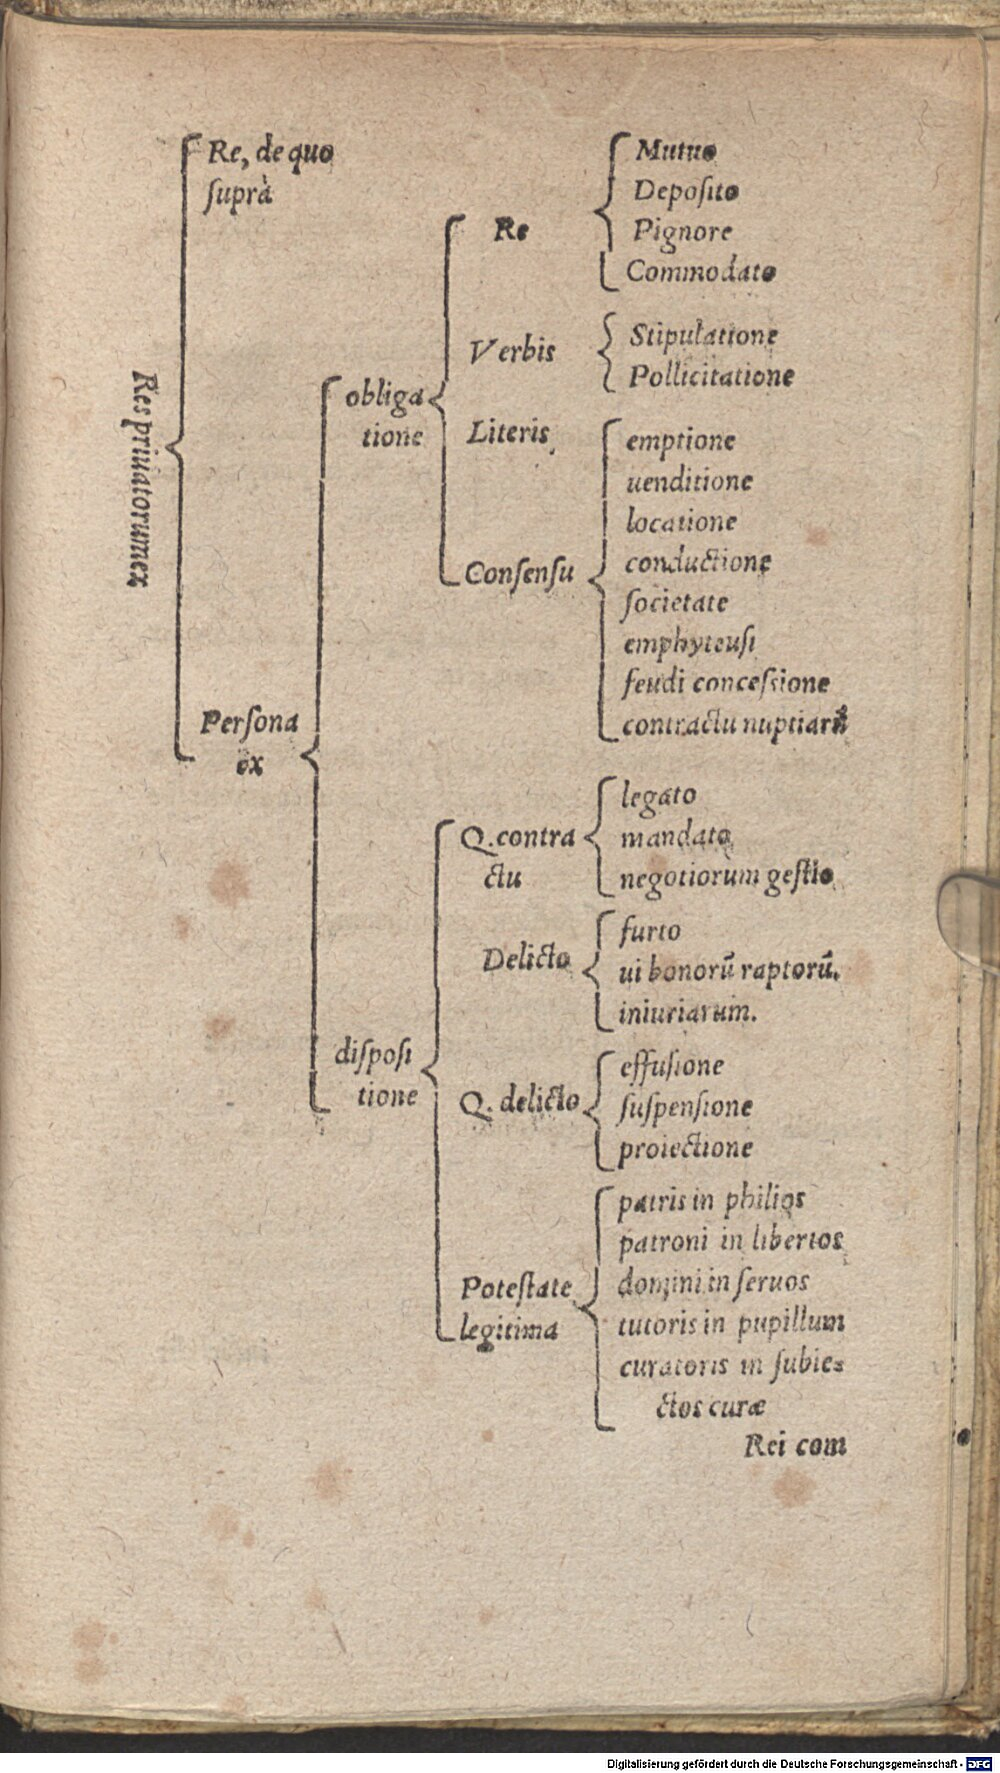 Res priuatorumex
Re, de quo
ſuprà
Persona
ex
obliga
tione
Re
Mutuo
Depoſito
Pignore
Commodato
Verbis
Stipulatione
Pollicitatione
Literis
Conſenſu
emptione
uenditione
locatione
conductione
ſocietate
emphyteuſi
feudi conceſsione
contractu nuptiarū
diſpoſi
tione
Q. contra
ctu
legato
mandato
negotiorum geſtio
Delicto
furto
ui bonorū raptorū.
iniuriarum.
Q. delicto
effuſione
ſuſpenſione
proiectione
Poteſtate
legitima
patris in philios
patroni in libertos
domini in ſeruos
tutoris in pupillum
curatoris in ſubie=
ctos curæ
Rei com
Digitalisierung gefördert durch die Deutsche Forschungsgemeinschaft - DFG